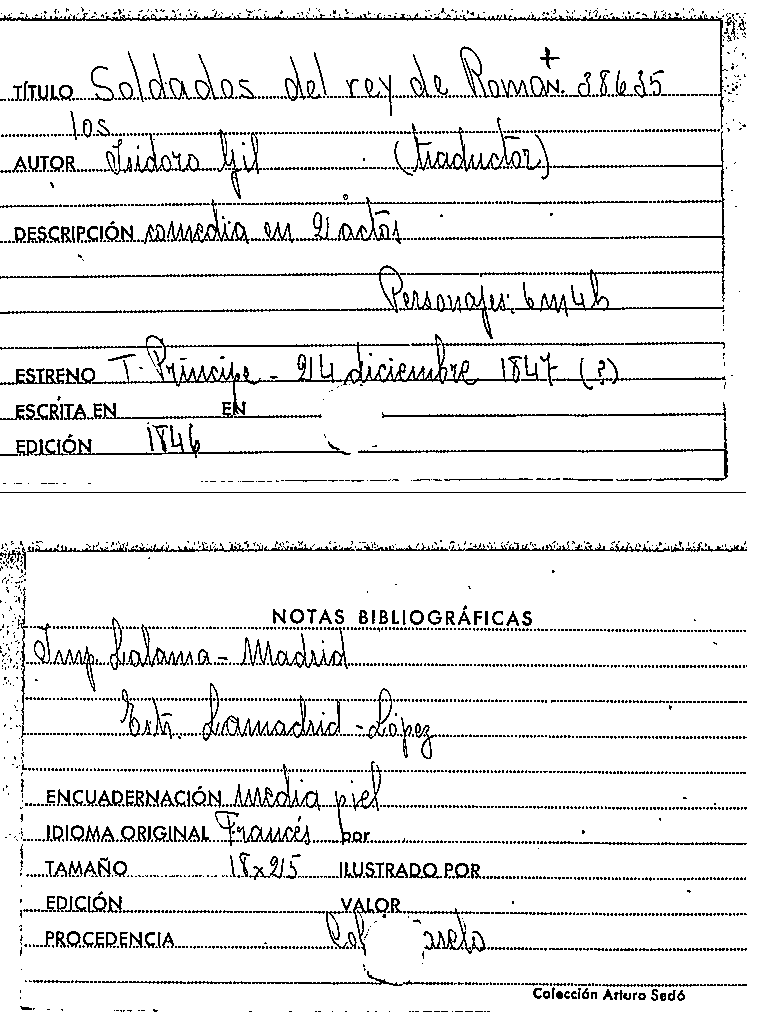 TÍTULO Soldados del rey de Roma. 38635
los
AUTOR Isidoro Gil (traductor)
DESCRIPCIÓN comedia en 2 actos
Personajes: 6 m 4 h
ESTRENO T. Príncipe - 24 diciembre 1847 (?)
ESCRITA EN EN
EDICIÓN 1846
NOTAS BIBLIOGRÁFICAS
Imp. Lalama - Madrid
Estr. Lamadrid - López
ENCUADERNACIÓN media piel
IDIOMA ORIGINAL Francés por
TAMAÑO 18x25 ILUSTRADO POR
EDICIÓN VALOR
PROCEDENCIA
Colección Arturo Sedó